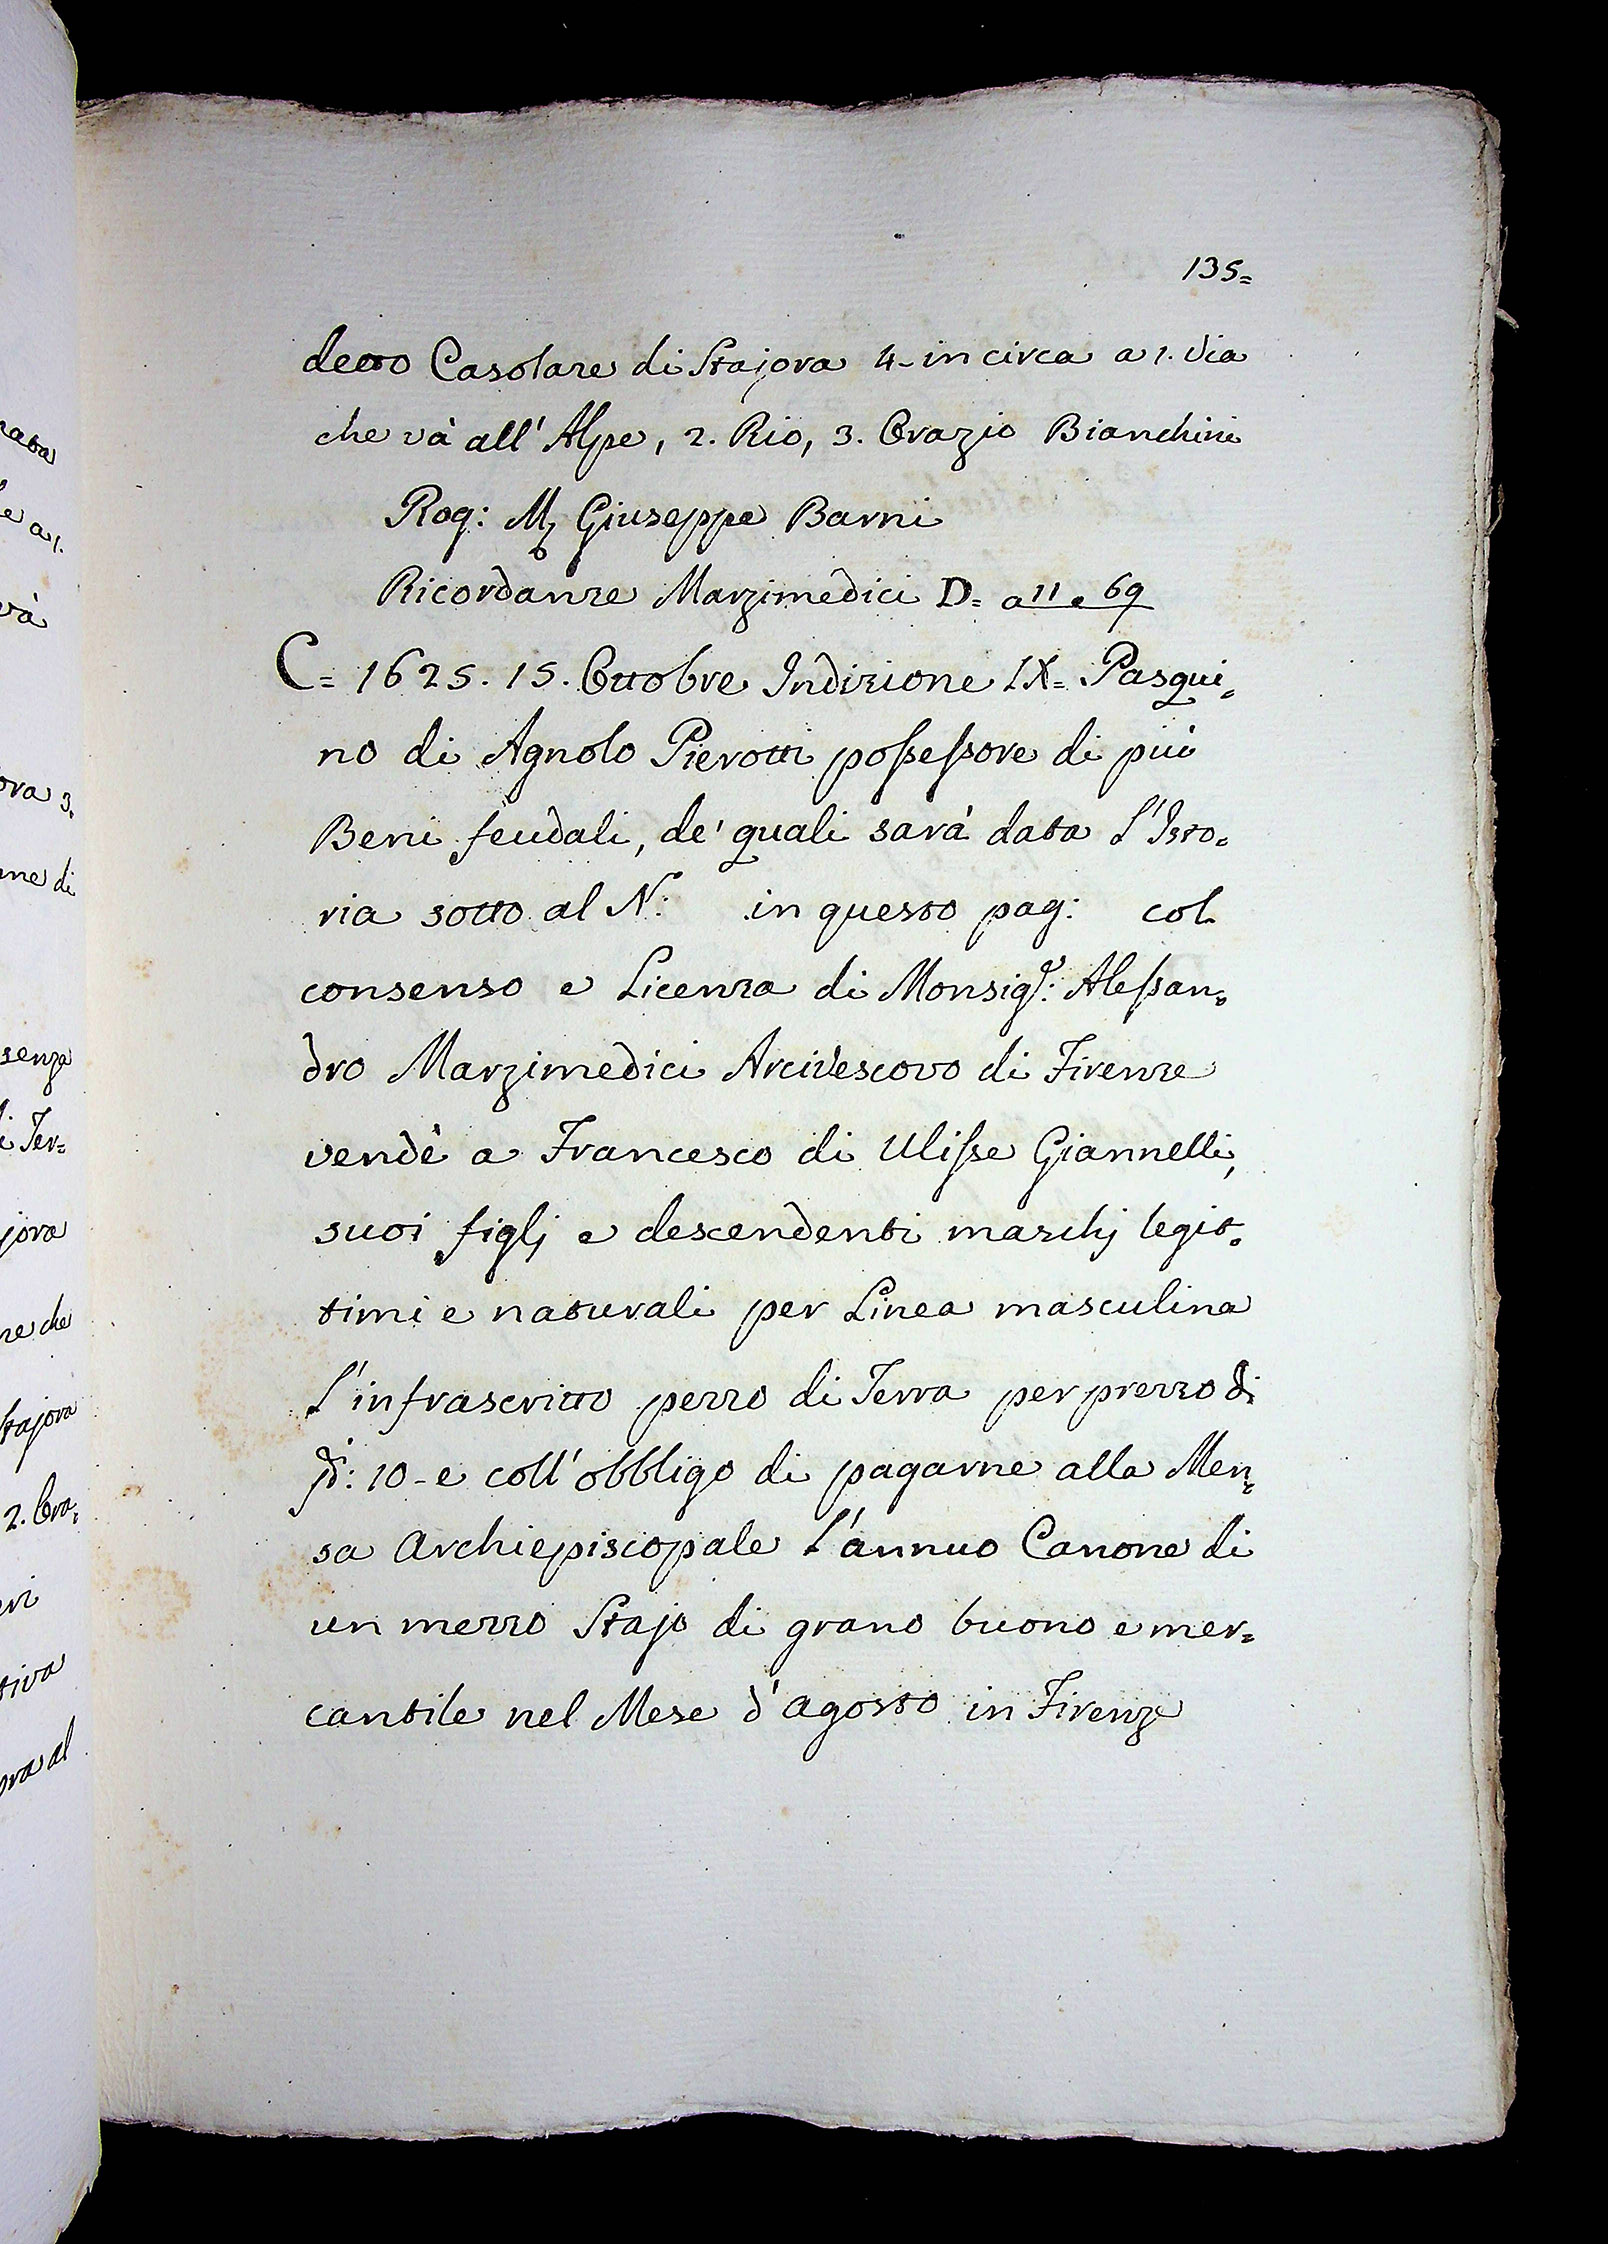 135=
detto Casolare di Stajora 4- in circa a 1. Via
che và all' Alpe, 2. Rio, 3. Orazio Bianchini
Rog: M Giuseppe Barni
Ricordanze Marzimedici D= a 11 e 69
C= 1625. 15. Ottobre Indizione IX= Pasqui=
no di Agnolo Pierotti possessore di più
Beni feudali, de' quali sarà data l'Isto=
ria sotto al N: in questo pag: col
consenso e Licenza di Monsig.r: Alessan=
dro Marzimedici Arcivescovo di Firenze
vendè a Francesco di Ulisse Giannelli,
suoi figlj e descendenti maschj legit=
timi e naturali per Linea masculina
l'infrascritto pezzo di Terra per prezzo di
10- e coll' obbligo di pagarne alla Men=
sa Archiepiscopale l'annuo Canone di
un mezzo Stajo di grano buono e mer=
cantile nel Mese d'agosto in Firenze